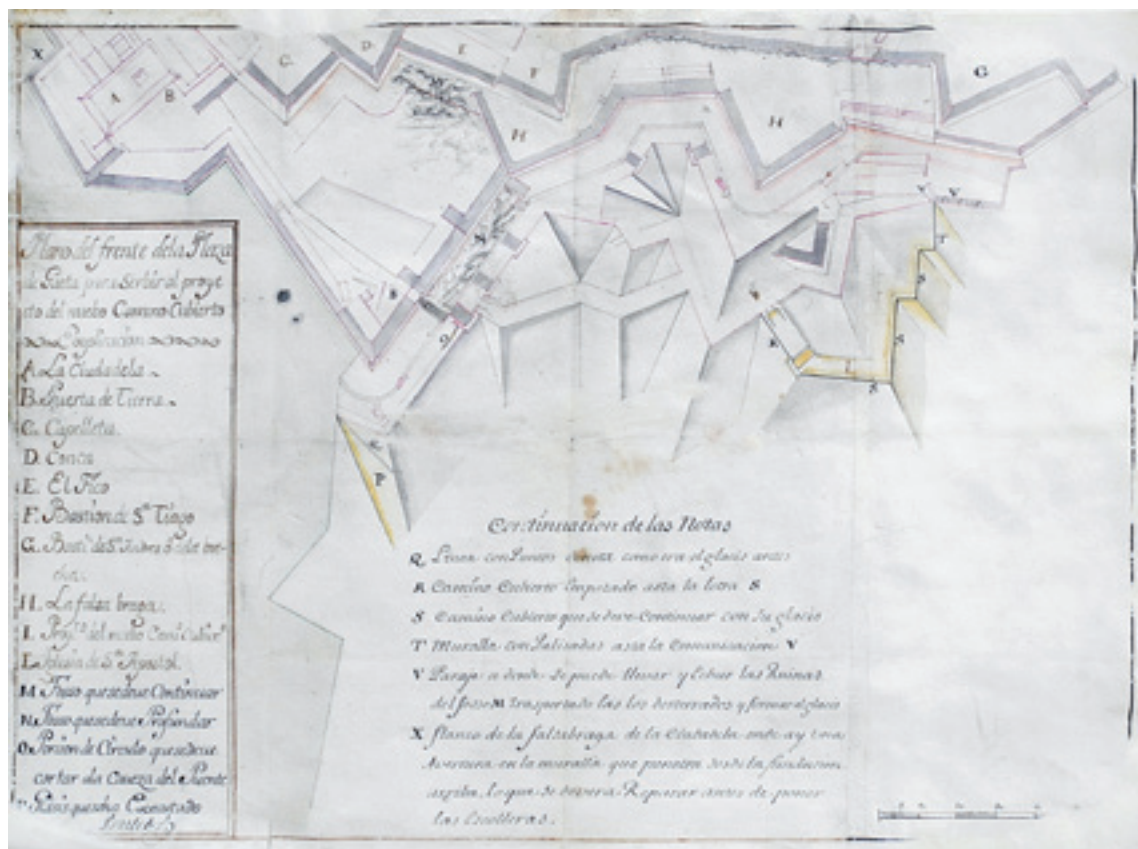 Plano del frente dela Plaza
de Gaeta para Serbir al proye
cto del nuebo Camino Cubierto
Explicacion
A. La Ciudadela.
B. Puerta de Tierra.
C. Capelleta.
D. Conca
E. El Pico
F. Bastion de Sn. Tiago
G. Basti. de Sn. Andres
H. La falsa braga.
I. Proyto. del nuebo Cami. Cubierto
L. Iglesia de Sn.
M. Fosso quesedeve Continuar
N. Fosso quesedeve Profundar
O. Porsion de Circulo quesedeve
cortar ala Caveza del Puente
P. queseha Executado
Continuacion de las Notas
Q. Linea con Puntos denota como era el glacis antes
R. Camino Cubierto Empesado asta la letra S
S Camino Cubierto que se deve Continuar con Su glacis
T Muralla con Palisadas asta la Comunicacion V
V Paraje a donde Se puede llevar y Echar las Ruinas
del fosso M trasportado las los desterrados y formar el glacis
X flanco de la falsabraga de la Ciudadela onde ay una
Avertura en la muralla que penetra desde la fundacion
arriba, lo que se devera Reparar antes de poner
las Escolleras.
A
B
C.
D.
E
F
G
H
H
X
V
T
S
S
R
P